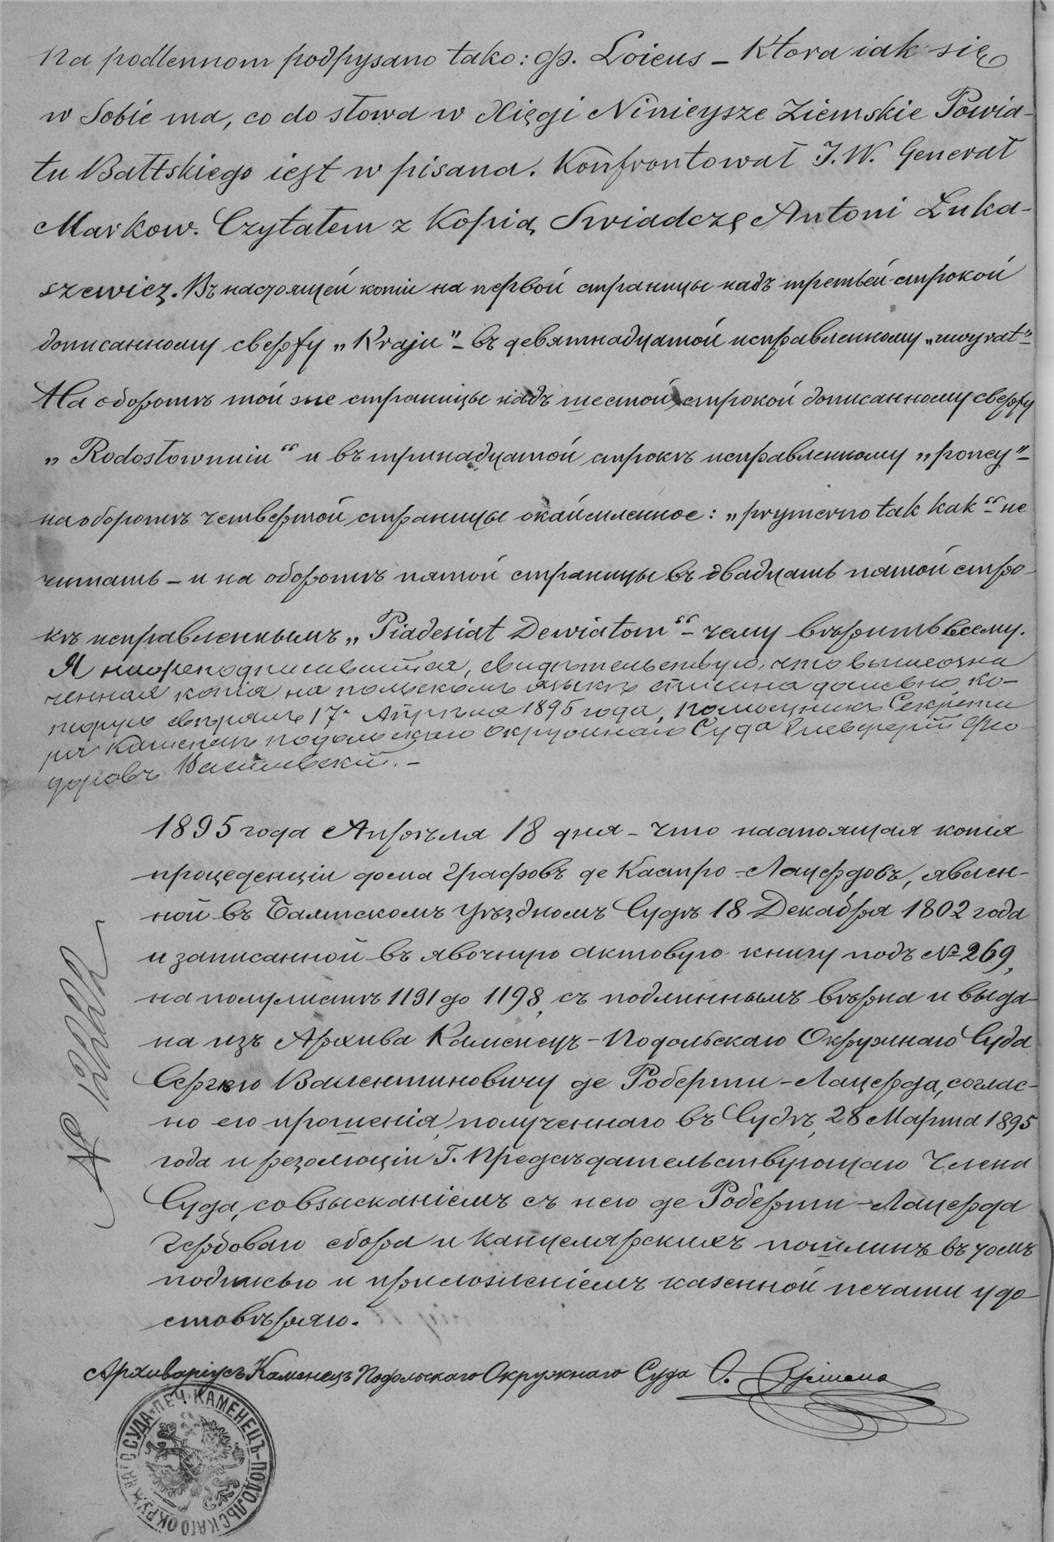 Na podlennom podpysano tako: gp. Loieus – Która iak się
w Sobie ma, co do słowa w Xięgi Ninieysze Ziemskie Powia-
tu Bałtskiego iest w pisana. Konfrontował J.W. Generał
Markow. Czytałem z Kopią Swiadczę Antoni Łuka-
szewicz. Въ настоящей копiи на первой страницы надъ третьей строкой
дописанному сверху „Kraju"– въ девятнадцатой исправленному
На оборотѣ той же страницы надъ шестой строкой дописанному сверху
„Rodosłowniu" и въ тринадцатой строкѣ исправленному
на оборотѣ четвертой страницы окаймленное: „prymerno tak kak" не
читать – и на оборотѣ пятой страницы въ двадцать пятой стро-
кѣ исправленнымъ „Piadesiat Dewiatom"– чему вѣрить всему.
Я нижеподписавшiйся, свидѣтельствую, что вышеозна
ченная копiя на польскомъ языкѣ списана дословно ко-
торую свѣрялъ 17 Апрѣля 1895 года, Помощникъ Секрета
ря Каменецъ Подольскаго Окружнаго Суда Елевферiй Фео-
доровъ Василевскiй. –
1895 года Апрѣля 18 дня – что настоящая копiя
процеденцiи дома Графовъ де Кастро-Лацердовъ, явлен-
ной въ Балтскомъ Уѣздномъ Судѣ 18 Декабря 1802 года
и записанной въ явочную актовую книгу подъ № 269,
на полулистѣ 1191 до 1198, съ подлиннымъ вѣрна и выда-
на изъ Архива Каменецъ-Подольскаго Окружнаго Суда
Сергѣю Валентиновичу де Роберти-Лацерда, соглас-
но его прошенiя, полученнаго въ Судѣ, 28 Марта 1895
года и резолюцiи Г. Предсѣдательствующаго Члена
Суда, со взысканiемъ съ него де Роберти-Лацерда
Гербоваго сбора и Канцелярскихъ пошлинъ въ томъ
подписью и приложенiемъ казенной печати удо-
стовѣряю.
Архиварiусъ Каменецъ Подольскаго Окружнаго Суда О.
№ 12222
ПЕЧ. КАМЕНЕЦЪ-ПОДОЛЬСКАГО ОКРУЖНАГО СУДА